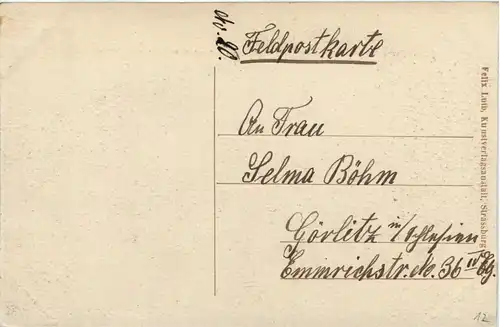 Feldpostkarte
An Frau
Selma Böhm
Görlitz i/Schlesien
Emmrichstr. No. 36 IV Etg.
Felix Luib, Kunstverlagsanstalt, Strassburg
12